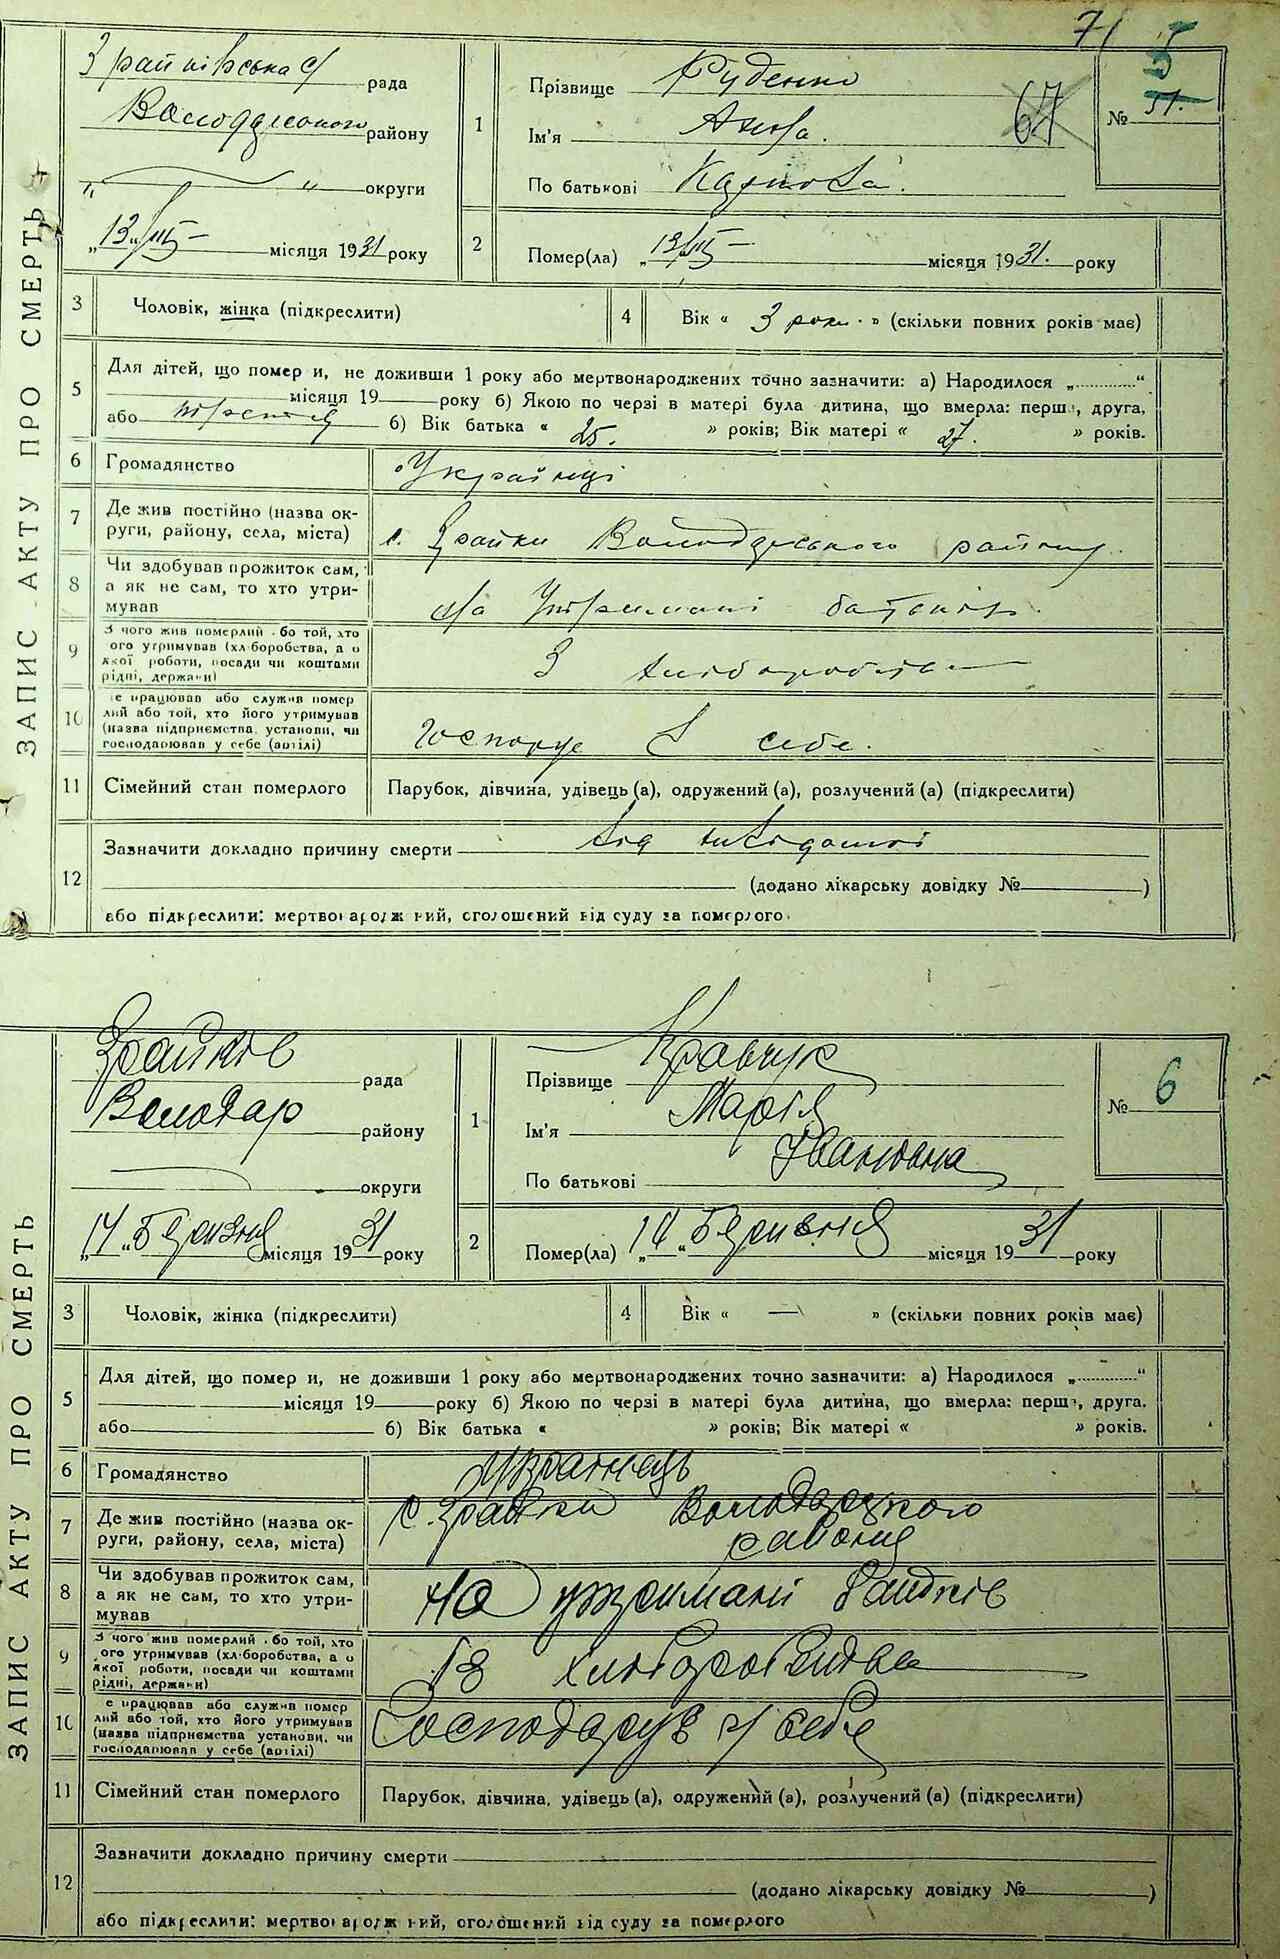 71
ЗАПИС АКТУ ПРО СМЕРТЬ
Зрайківська с/ рада
Володарського району
" — " округи
„13„/III — місяця 1931 року
1
Прізвище Руденко
Ім'я Ганна.
По батькові
67
№ 5
31.
2
Помер(ла) „13/III — місяця 1931. року
3 Чоловік, жінка (підкреслити)
4 Вік « 3 роки. » (скільки повних років має)
5 Для дітей, що помер и, не доживши 1 року або мертвонароджених точно зазначити: а) Народилося „............“
місяця 19 року б) Якою по черзі в матері була дитина, що вмерла: перш , друга,
або третя б) Вік батька « 25. » років; Вік матері « 27. » років.
6 Громадянство Українці
7 Де жив постійно (назва ок-
руги, району, села, міста) с. Зрайки Володарського району.
8 Чи здобував прожиток сам,
а як не сам, то хто утри-
мував На утриманні батьків.
9 З чого жив померлий бо той, хто
ого утримував (хл боробства, а о
якої роботи, посади чи коштами
рідні, держави) З хліборобства
10 е працював або служив помер
лий або той, хто його утримував
(назва підприємства, установи, чи
господарював у себе (артілі) Господ в себе.
11 Сімейний стан померлого Парубок, дівчина, удівець (а), одружений (а), розлучений (а) (підкреслити)
12 Зазначити докладно причину смерти від невідомої
(додано лікарську довідку № )
або підкреслити: мертвонародж ний, оголошений від суду за померлого.
ЗАПИС АКТУ ПРО СМЕРТЬ
Зрайків рада
Володар району
округи
„14„ Березня місяця 1931 року
1
Прізвище Кравчук
Ім'я Марія
По батькові Івановна
№ 6
2
Помер(ла) „14„ Березня місяця 1931 року
3 Чоловік, жінка (підкреслити)
4 Вік « — » (скільки повних років має)
5 Для дітей, що помер и, не доживши 1 року або мертвонароджених точно зазначити: а) Народилося „............“
місяця 19 року б) Якою по черзі в матері була дитина, що вмерла: перш , друга,
або б) Вік батька « » років; Вік матері « » років.
6 Громадянство Українець
7 Де жив постійно (назва ок-
руги, району, села, міста) с. Зрайки Володарського
району
8 Чи здобував прожиток сам,
а як не сам, то хто утри-
мував На утримані батьків
9 З чого жив померлий бо той, хто
ого утримував (хл боробства, а о
якої роботи, посади чи коштами
рідні, держави) Із хліборобства
10 е працював або служив помер
лий або той, хто його утримував
(назва підприємства установи, чи
господарював у себе (артілі) Господарув у себе
11 Сімейний стан померлого Парубок, дівчина, удівець (а), одружений (а), розлучений (а) (підкреслити)
12 Зазначити докладно причину смерти
(додано лікарську довідку № )
або підкреслити: мертвонародж ний, оголошений від суду за померлого